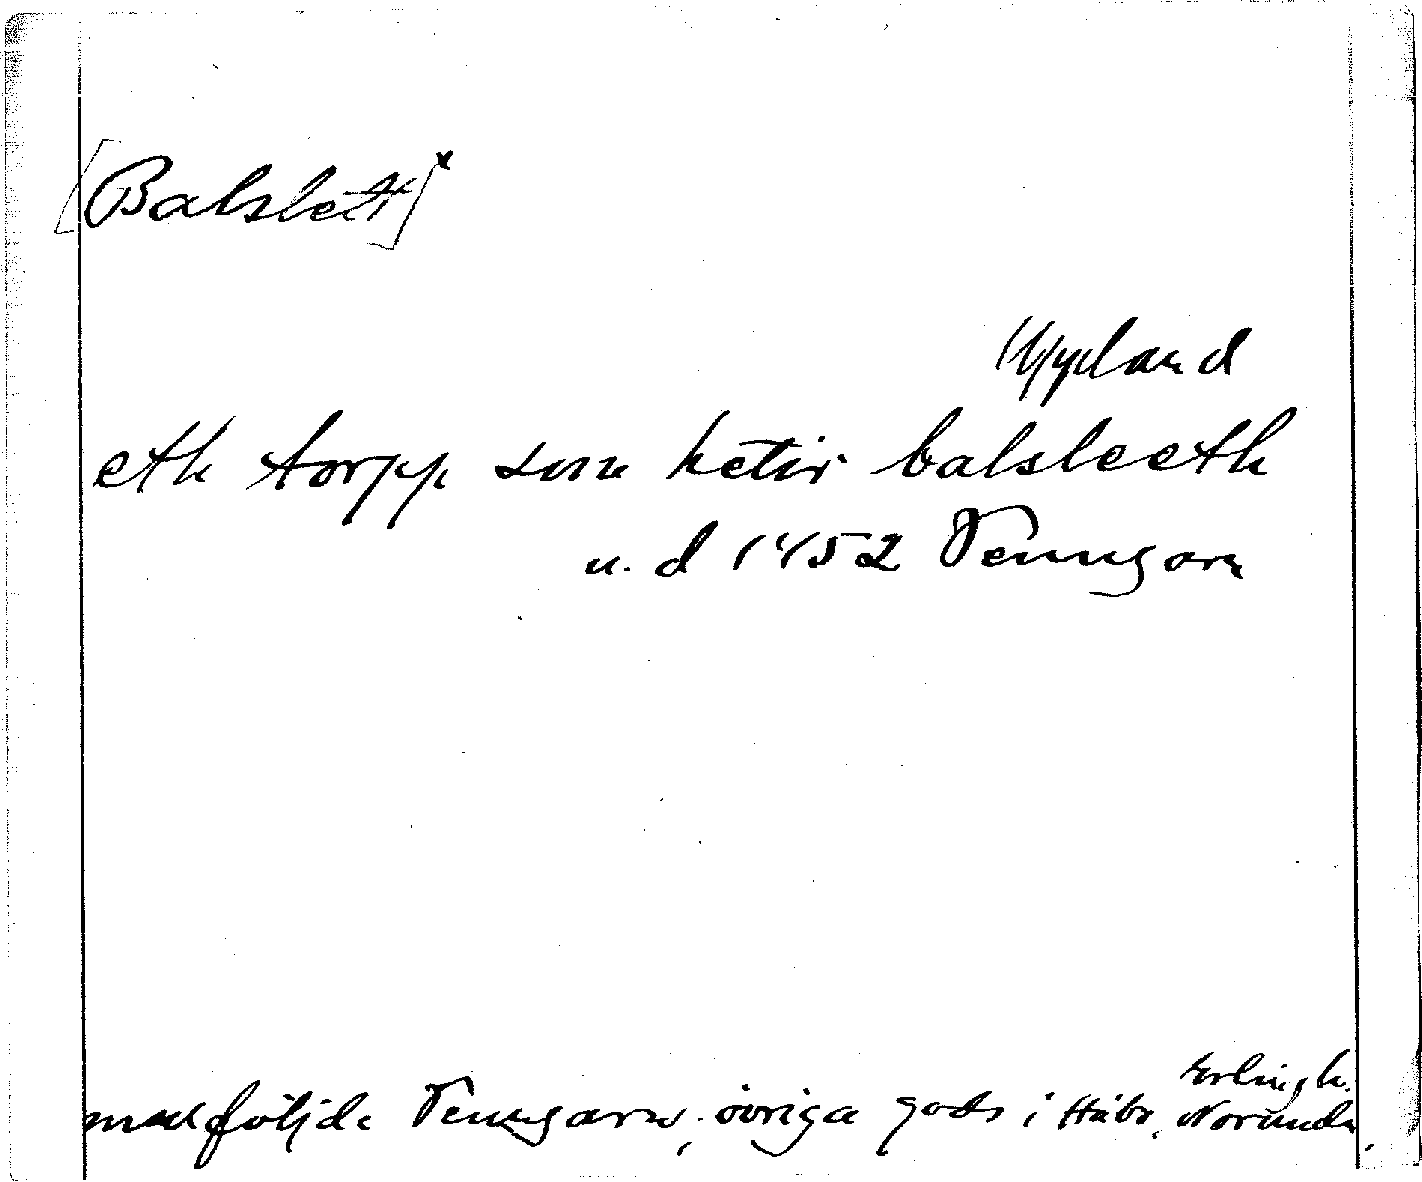 [Balslett]x
Uppland
eth torpp som hetir balsleeth
u. d 1452 Venngarn
Erlingh.
medföljde Venngarn, övriga gods i Håbo, Norunda,